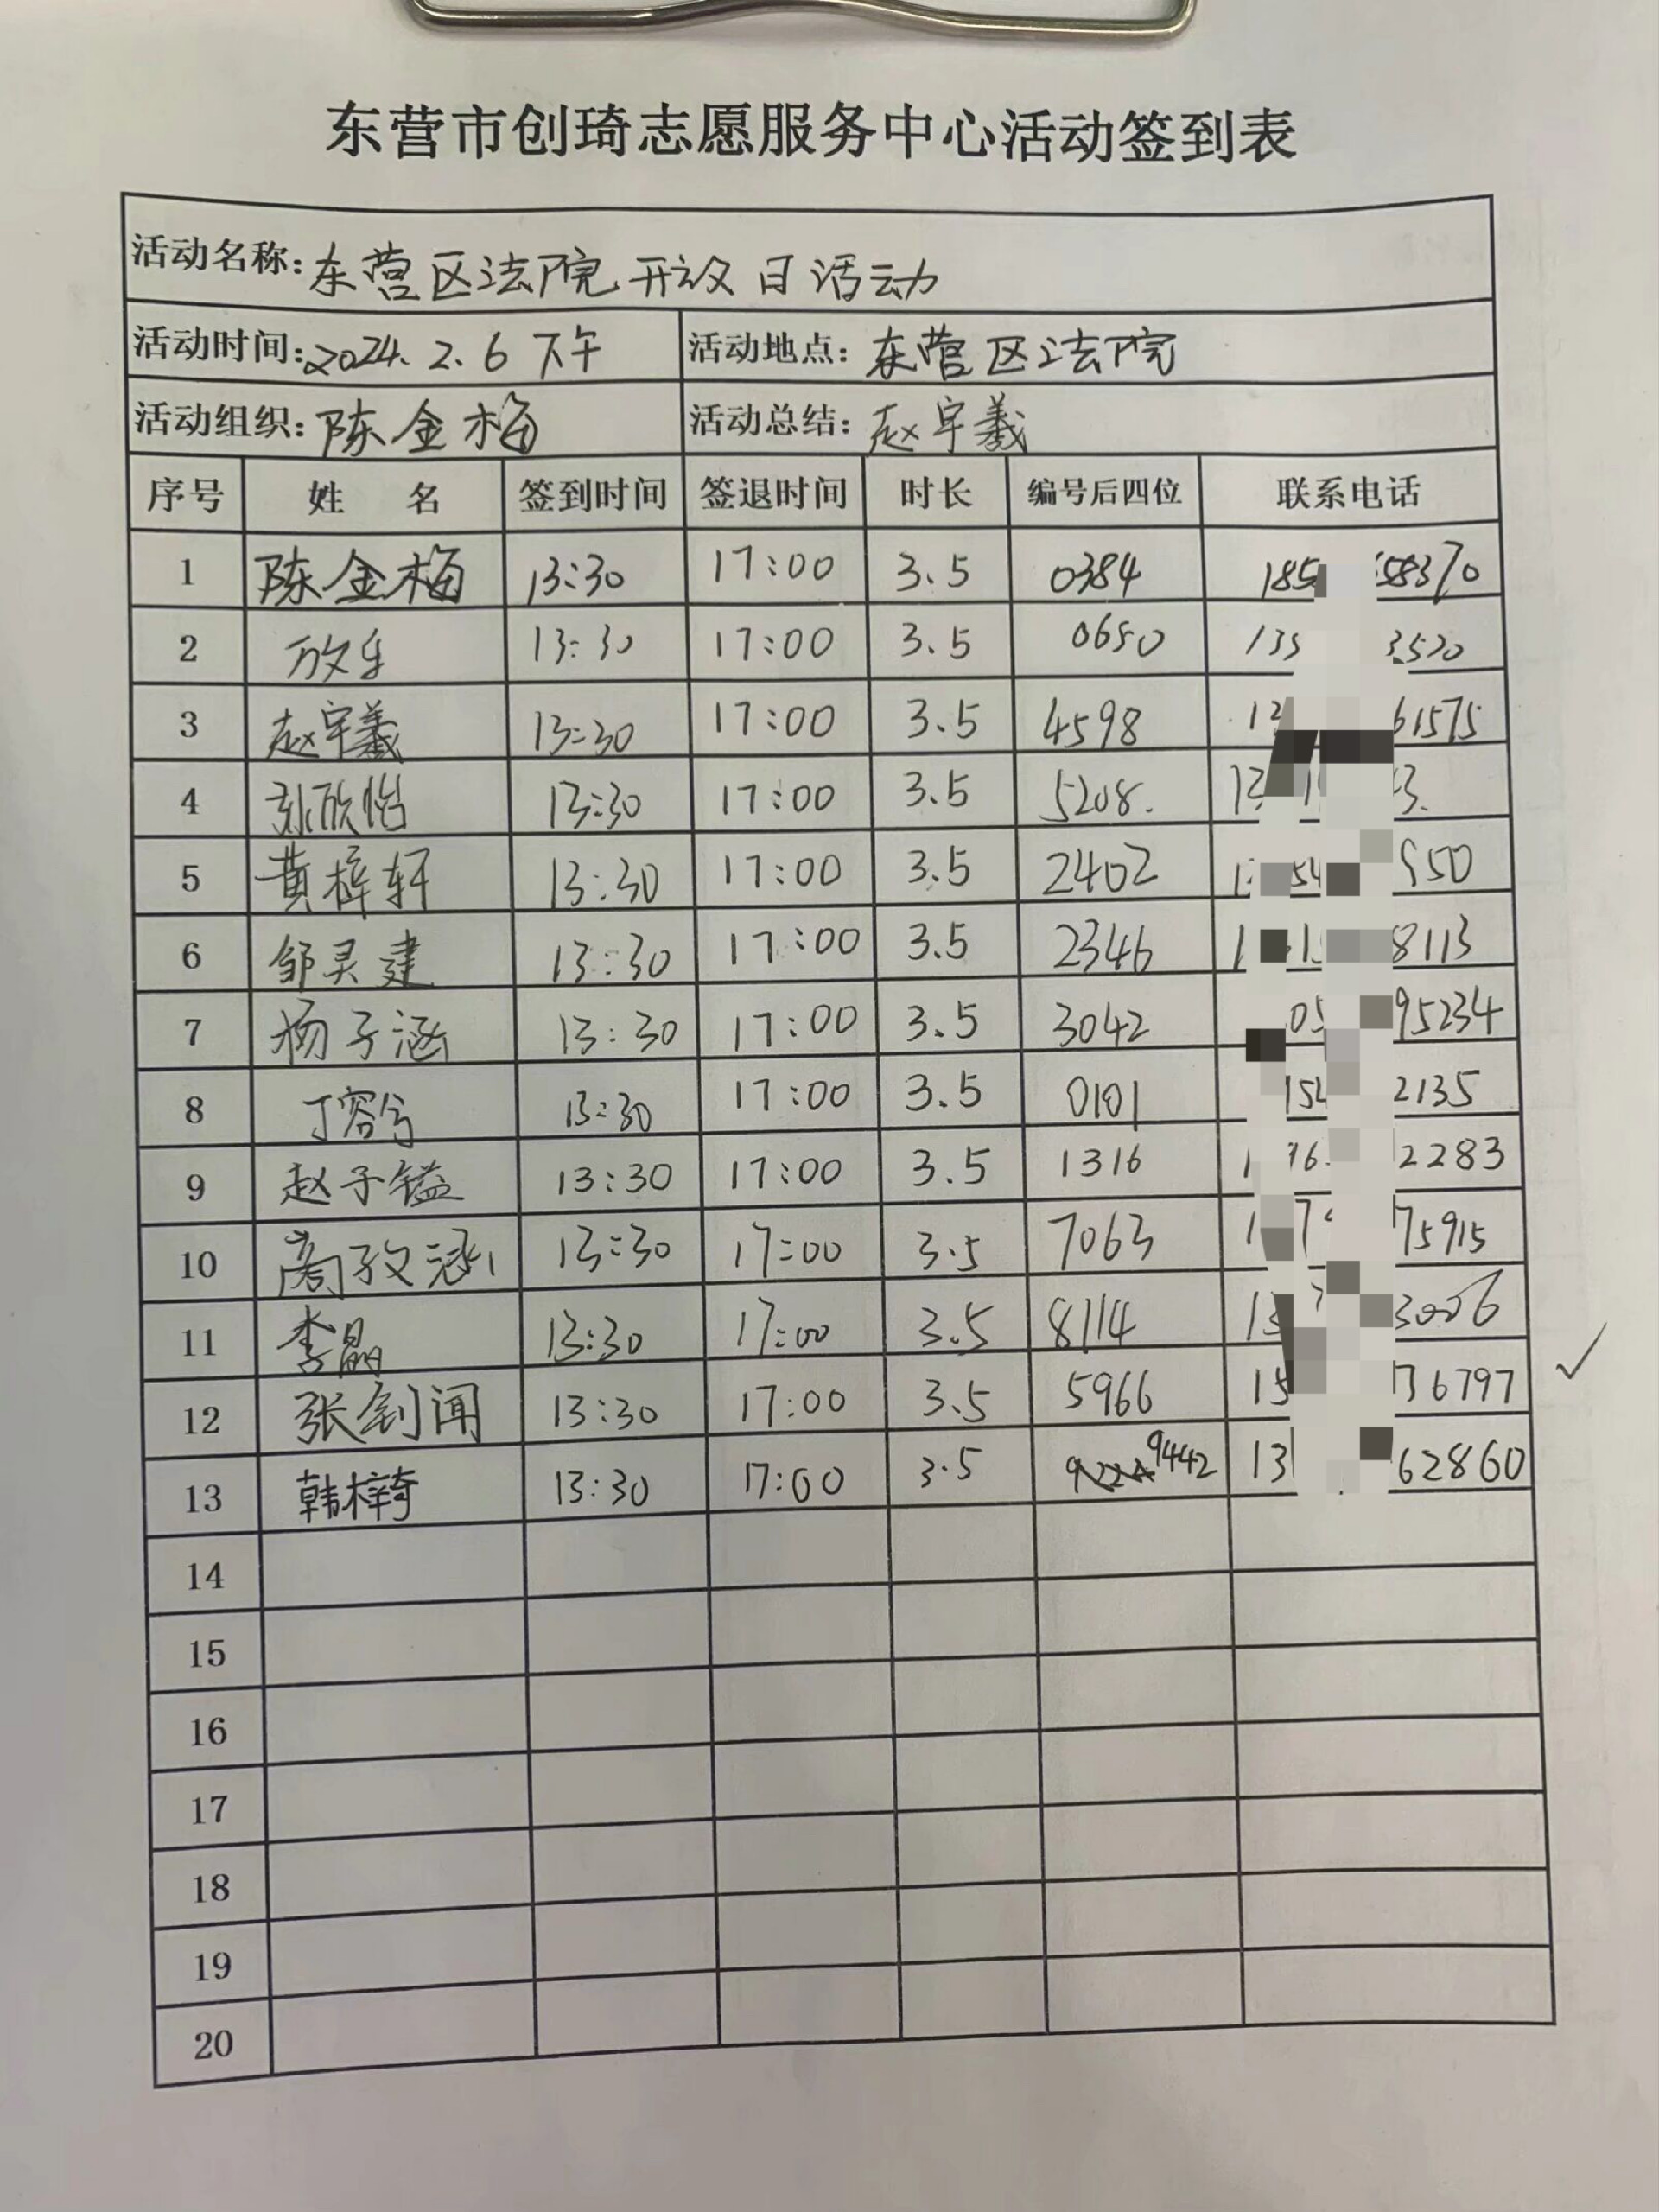 东营市创琦志愿服务中心活动签到表
活动名称:东营区法院开放日活动
活动时间:2024.2.6下午 活动地点:东营区法院
活动组织:陈金梅 活动总结:赵宇羲
序号 姓 名 签到时间 签退时间 时长 编号后四位 联系电话
1 陈金梅 13:30 17:00 3.5 0384 185 58370
2 13:30 17:00 3.5 0650 135 3520
3 赵宇羲 13:30 17:00 3.5 4598 61575
4 欣怡 13:30 17:00 3.5 5208.
5 黄梓轩 13:30 17:00 3.5 2402 950
6 邹灵建 13:30 17:00 3.5 2346 8113
7 杨子涵 13:30 17:00 3.5 3042 05 95234
8 丁容兮 13:30 17:00 3.5 0101 2135
9 赵子镒 13:30 17:00 3.5 1316 2283
10 高孜涵 13:30 17:00 3.5 7063 75915
11 李晶 13:30 17:00 3.5 8114 13 3006
12 张钊闻 13:30 17:00 3.5 5966 15 36797
13 韩梓琦 13:30 17:00 3.5 9442 13 62860
14
15
16
17
18
19
20